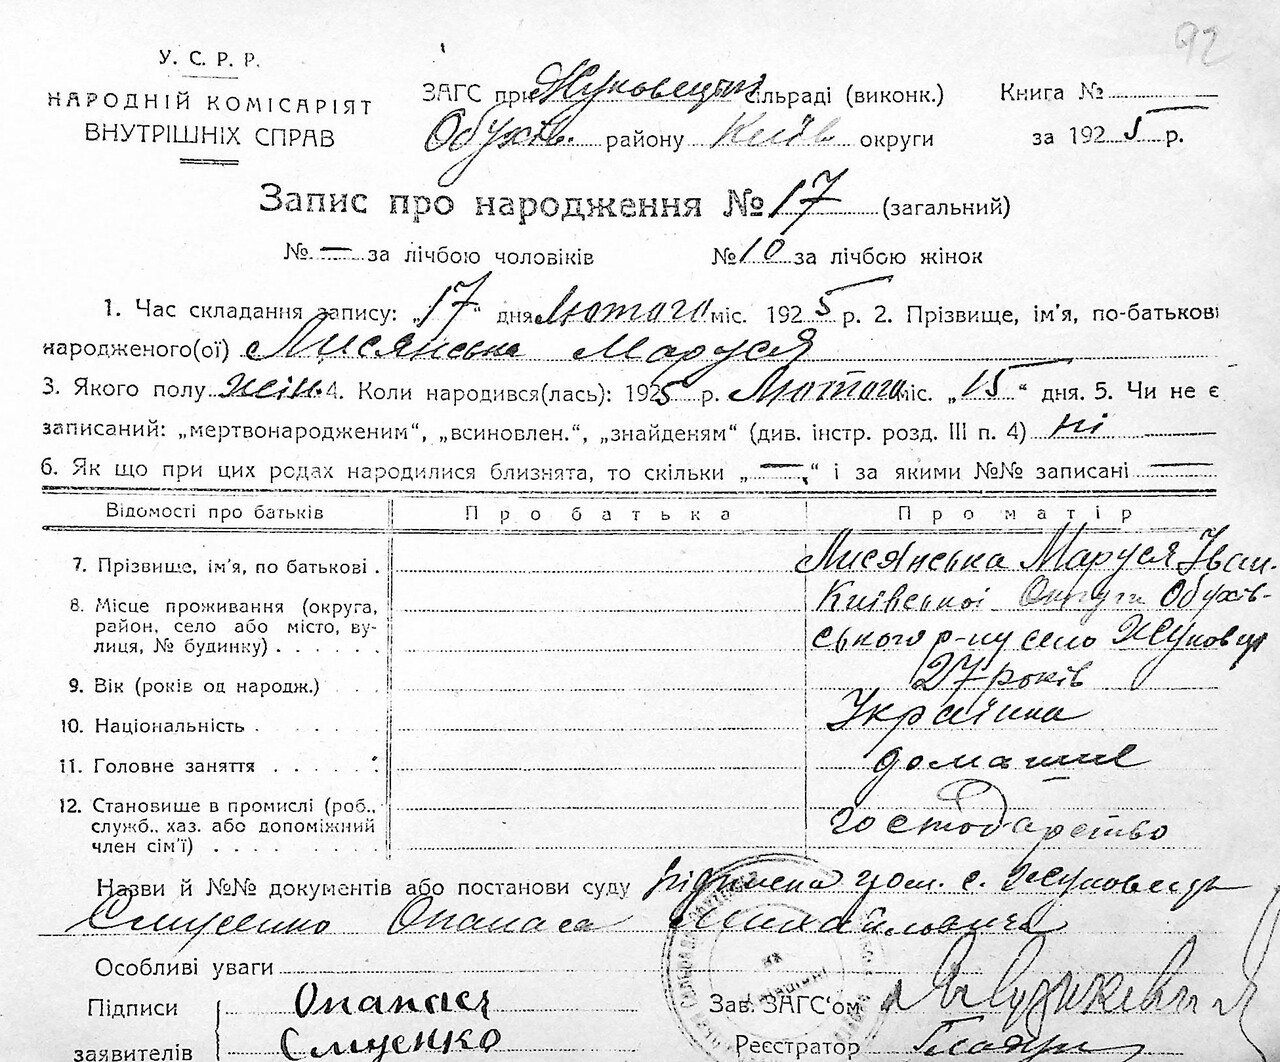 92
У. С. Р. Р.
НАРОДНІЙ КОМІСАРІЯТ
ВНУТРІШНІХ СПРАВ
ЗАГС при Жуковецькій сільраді (виконк.) Книга №
Обухів. району Київ округи за 1925 р.
Запис про народження № 17 (загальний)
№ — за лічбою чоловіків № 10 за лічбою жінок
1. Час складання запису: „17“ дня Лютого міс. 1925 р. 2. Прізвище, ім'я, по-батькові
народженого(ої) Лисянська Маруся
3. Якого полу жін. 4. Коли народився(лась): 1925 р. Лютого міс. „15“ дня. 5. Чи не є
записаний: „мертвонародженим“, „всиновлен.“, „знайденям“ (див. інстр. розд. III п. 4) ні
6. Як що при цих родах народилися близнята, то скільки „—“ і за якими №№ записані —
Відомості про батьків Про батька Про матір
7. Прізвище, ім'я, по батькові . Лисянська Маруся Іван.
8. Місце проживання (округа, Київської Округи Обухів-
район, село або місто, ву- ського р-ну село Жуковці
лиця, № будинку) . . . . . .
9. Вік (років од народж.) . . . 27 років
10. Національність . . . . . . Українка
11. Головне заняття . . . . . . домашнє
12. Становище в промислі (роб., господарство
служб., хаз. або допоміжний
член сім'ї) . . . . . . . .
Назви й №№ документів або постанови суду гром. с. Жуковець
Опанаса Михайловича
Особливі уваги
Підписи Опанас Зав. ЗАГС'ом
заявителів Реєстратор